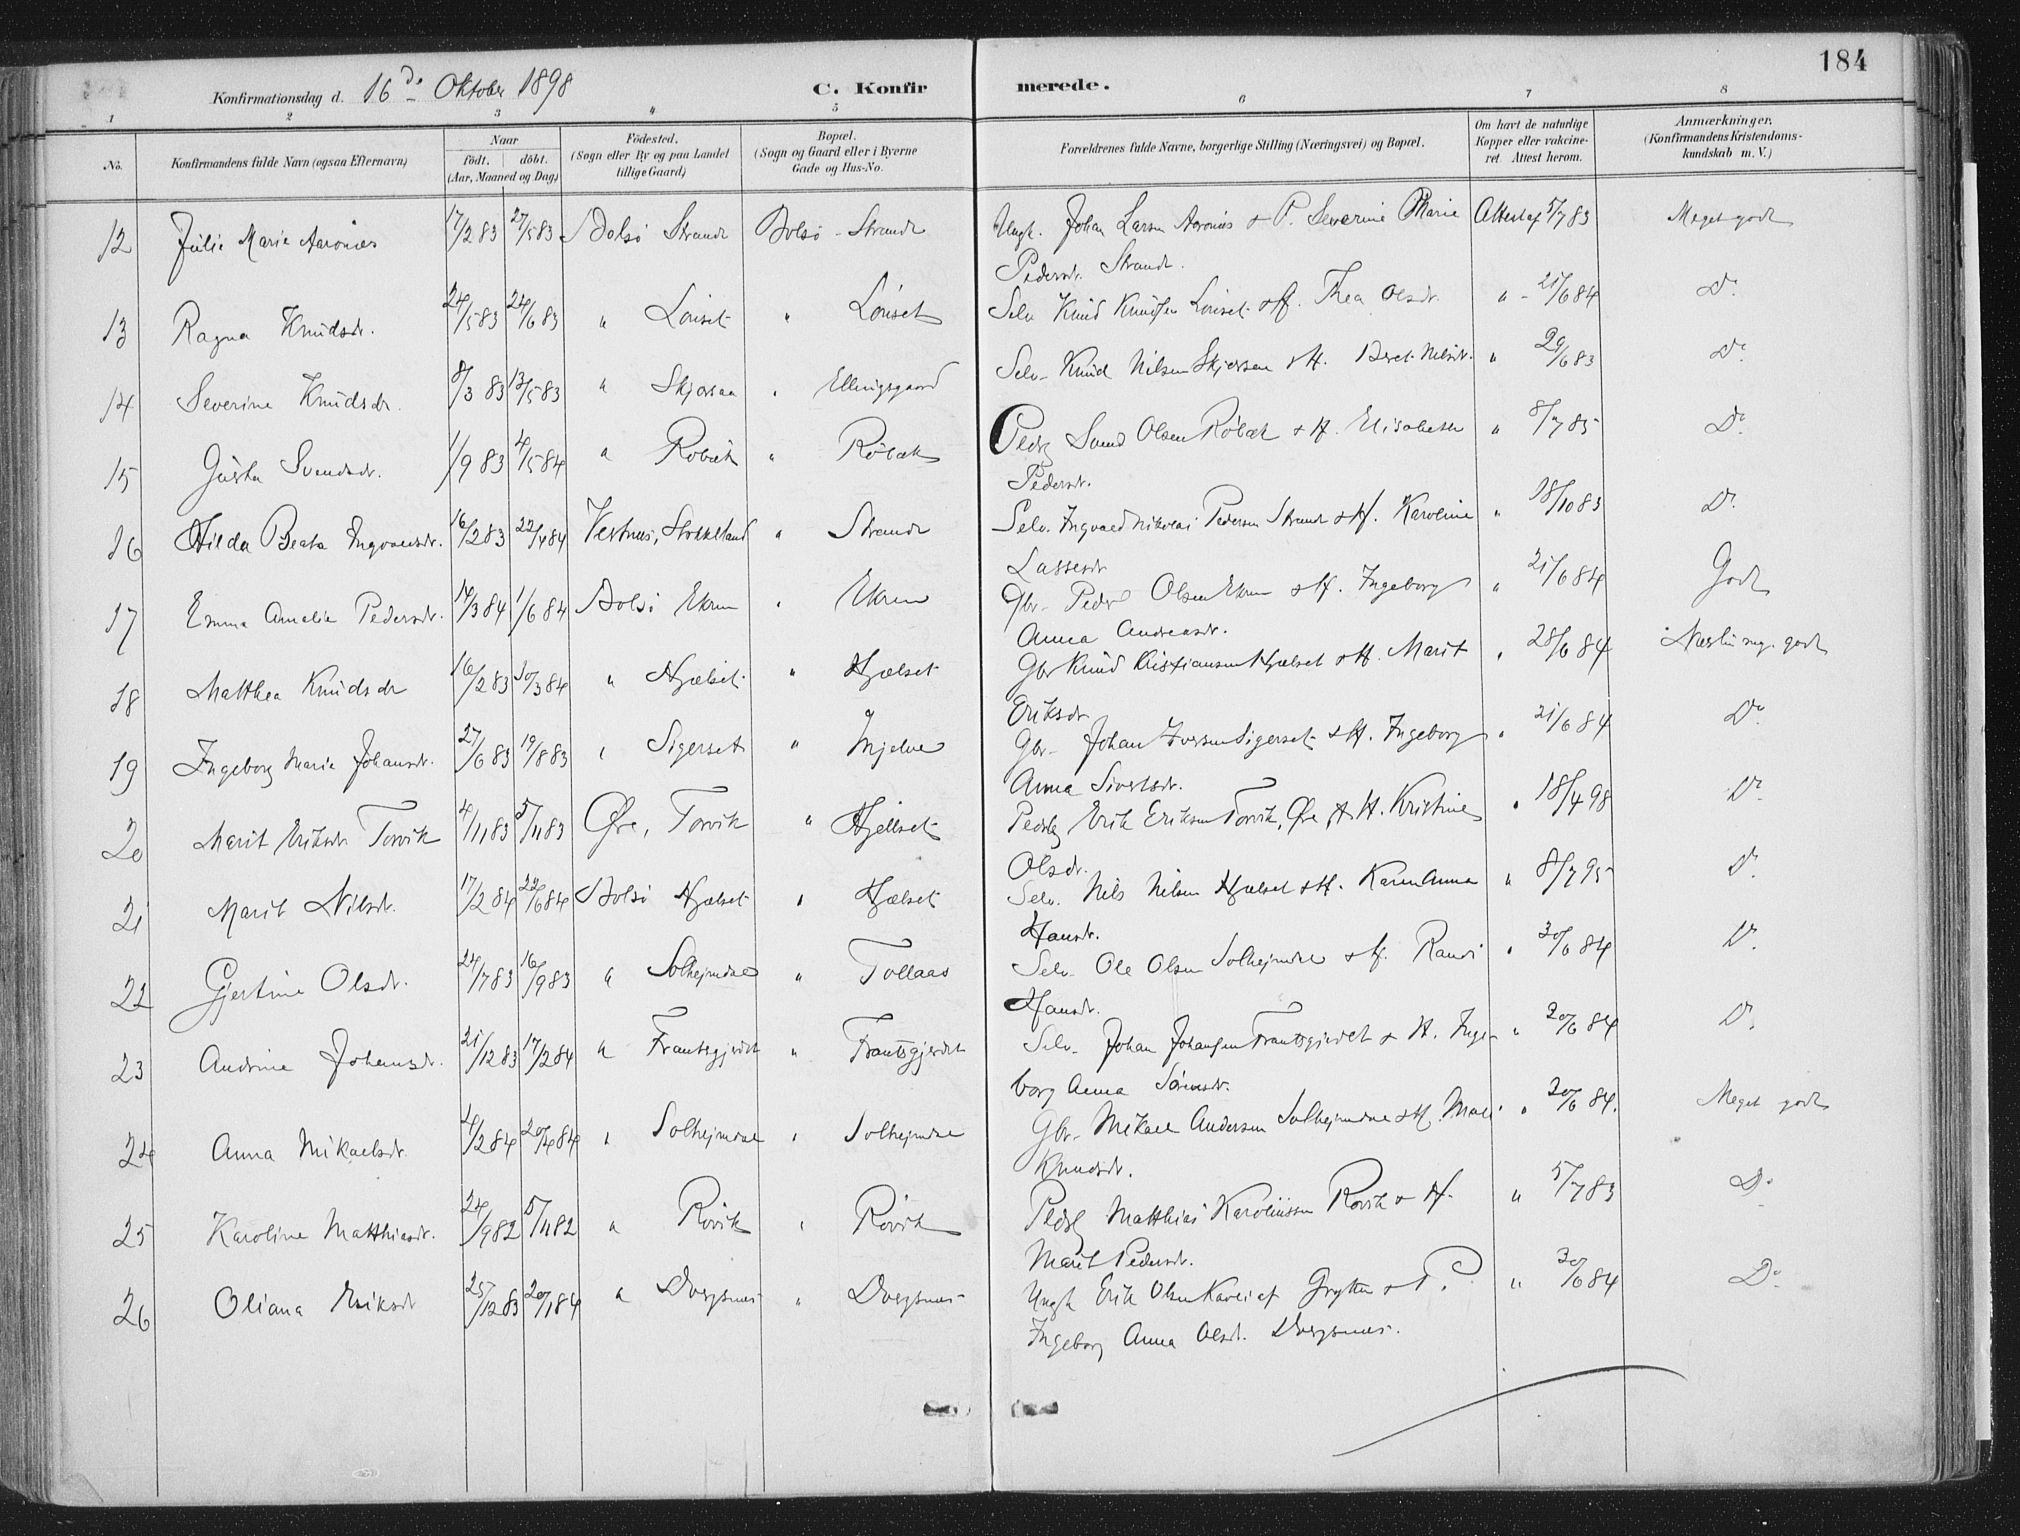 184
Konfirmationsdag d. 16de Oktober 1898 C. Konfirmerede.
1 2 3 4 5 6 7 8
No. Konfirmandens fulde Navn (ogsaa Efternavn) Naar födt. döbt. (Aar, Maaned og Dag) Födested. (Sogn eller By og paa Landet tillige Gaard) Bopæl. (Sogn og Gaard eller i Byerne Gade og Hus-No. Forældrenes fulde Navne, borgerlige Stilling (Næringsvei) og Bopæl. Om havt de naturlige Kopper eller vakcineret. Attest herom. Anmærkninger. (Konfirmandens Kristendomskundskab m. V.)
12 Julie Marie Aaronæs 17/2 83 27/5 83 Bolsö Strande Bolsö Strande Ungk. Johan Larsen Aaronæs & P. Severine Marie Attest af 5/7 83 Meget godt
Pedersdr. Strande.
13 Ragna Knudsdr. 24/5 83 24/6 83 " Lönset " Lönset Selv. Knud Knudsen Lönset & H. Thea Olsdr. " 21/6 84 Do.
14 Severine Knudsdr. 8/3 83 13/5 83 " Skjorsaa " Ellingsgaard Selv. Knud Nilsen Skjorsaa & H. Beret Nilsdr. " 29/6 83 Do.
15 Gusta Svendsdr. 1/9 83 4/5 84 " Röbæk " Röbæk Pedrs Svend Olsen Röbæk & H. Elisabeth " 8/7 85 Do.
Pedersdr.
16 Hilda Beata Ingvaldsdr. 16/2 83 22/4 84 Vestnes, Stokkeland " Strande Selv. Ingvald Nikolai Pedersen Strande & H. Karoline " 18/10 83 Do.
Lassesdr.
17 Emma Amalia Pedersdr. 14/3 84 1/6 84 Bolsö Ekren " Ekren Gbr. Peder Olsen Ekren & H. Ingeborg " 21/6 84 Godt
Anna Andreasdr.
18 Matthea Knudsdr 16/2 83 30/3 84 " Hjælset " Hjælset Gbr Knud Kristiansen Hjælset & H. Marit " 28/6 84 Næsten meg. godt
Eriksdr
19 Ingeborg Marie Johansdr. 27/6 83 19/8 83 " Sigerset " Mjelve Gbr. Johan Iversen Sigerset & H. Ingeborg " 21/6 84 Do.
Anna Sivertsdr.
20 Marit Eriksdr. Torvik 4/11 83 5/11 83 Öre, Torvik " Hjellset Erik Eriksen Torvik, Öre, & H. Kristine " 18/4 98 Do.
Olsdr.
21 Marit Nilsdr. 17/2 84 22/6 84 Bolsö Hjælset " Hjælset Selv. Nils Nilsen Hjælset & H. Karen Anna " 8/7 95 Do.
Hansdr.
22 Gjertine Olsdr. 24/7 83 16/9 83 " Solhejmdal " Tollaas Selv. Ole Olsen Solhejmdal & H. Randi " 30/6 84 Do.
Hansdr.
23 Andrine Johansdr. 21/12 83 17/2 84 " Frantsgjerdet " Frantsgjerdet Selv. Johan Johansen Frantsgjerdet & H. Inge- " 20/6 84 Do.
borg Anna Sörensdr.
24 Anna Mikaelsdr. 4/2 84 20/4 84 " Solhejmdal " Solhejmdal Gbr. Mikael Andersen Solhejmdal & H. Mari " 20/6 84. Meget godt
Knudsdr.
25 Karoline Matthiasdr. 24/9 82 5/11 82 " Rövik " Rövik Matthias Karoliussen Rövik & H. " 5/7 83 Do.
Marit Pedersdr.
26 Oliana Eriksdr 25/12 83 20/1 84 " Dvergsnæs " Dvergsnæs Ungk Erik Olsen af Grytten & P. " 30/6 84 Do.
Ingeborg Anna Olsdr. Dvergsnæs.